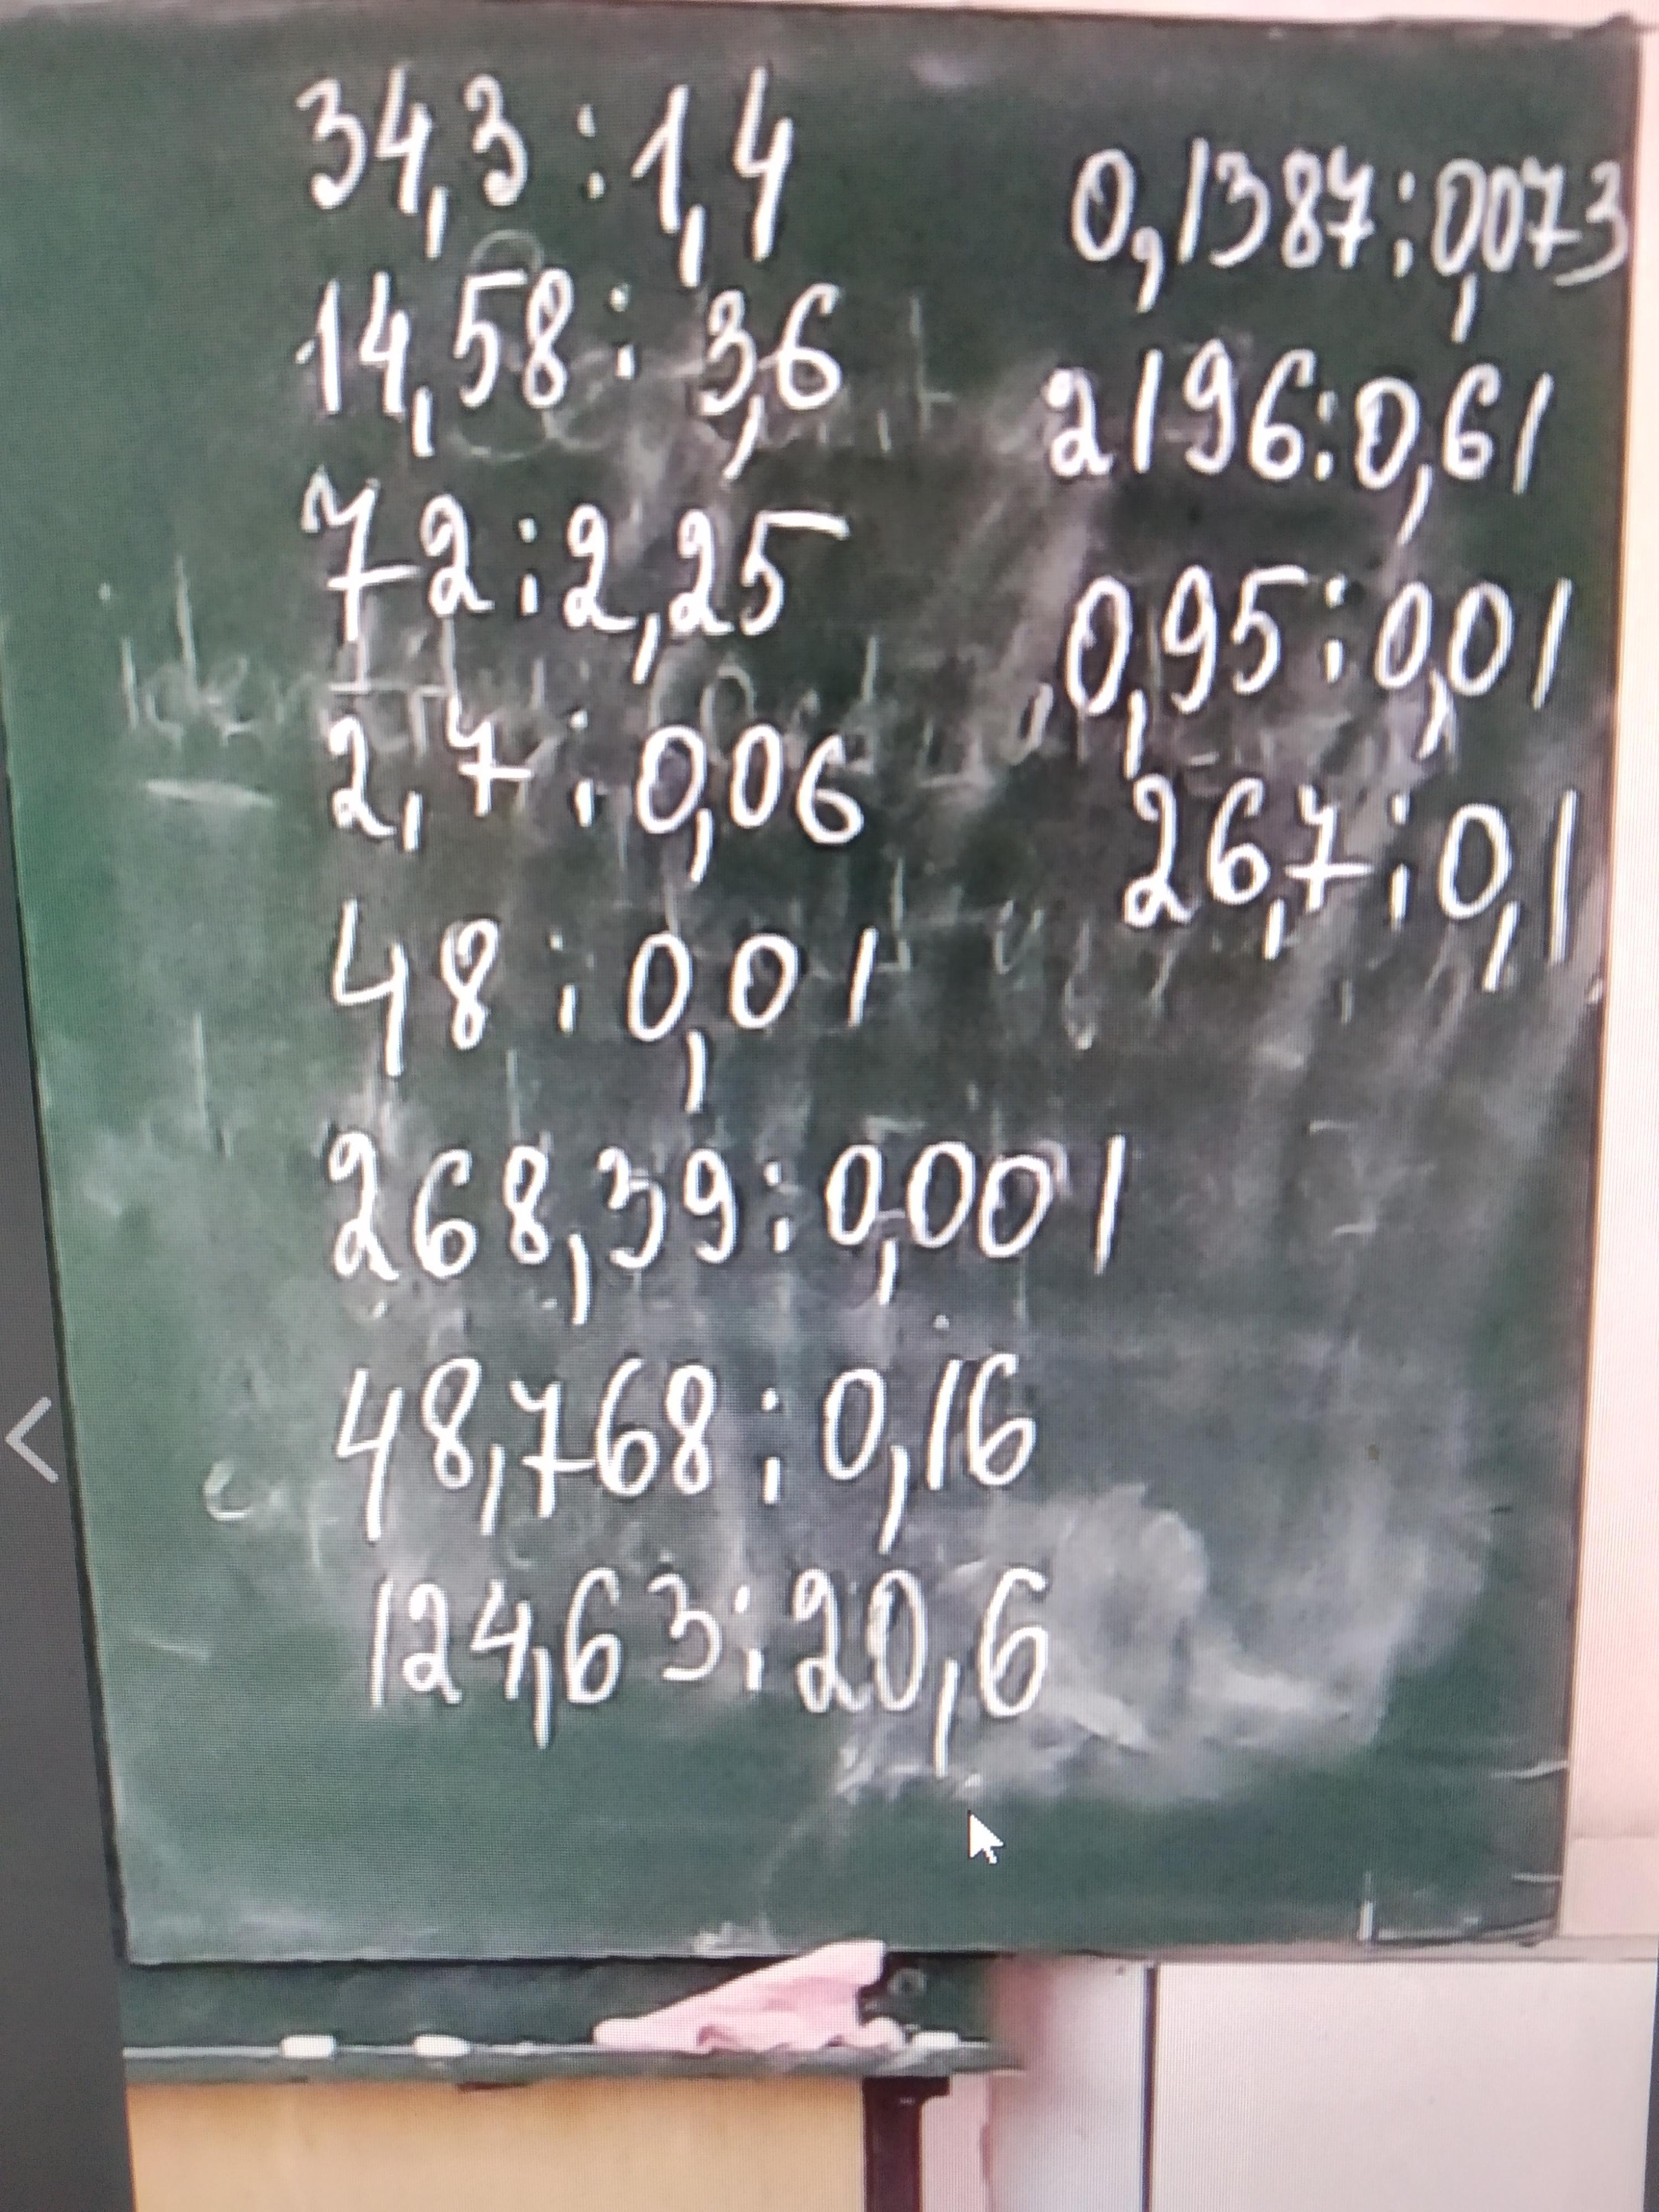 34,3 : 1,4
14,58 : 3,6
72 : 2,25
2,7 : 0,06
48 : 0,01
268,39 : 0,001
48,768 : 0,16
124,63 : 20,6
0,1387 : 0,073
2196 : 0,61
0,95 : 0,01
26,7 : 0,1